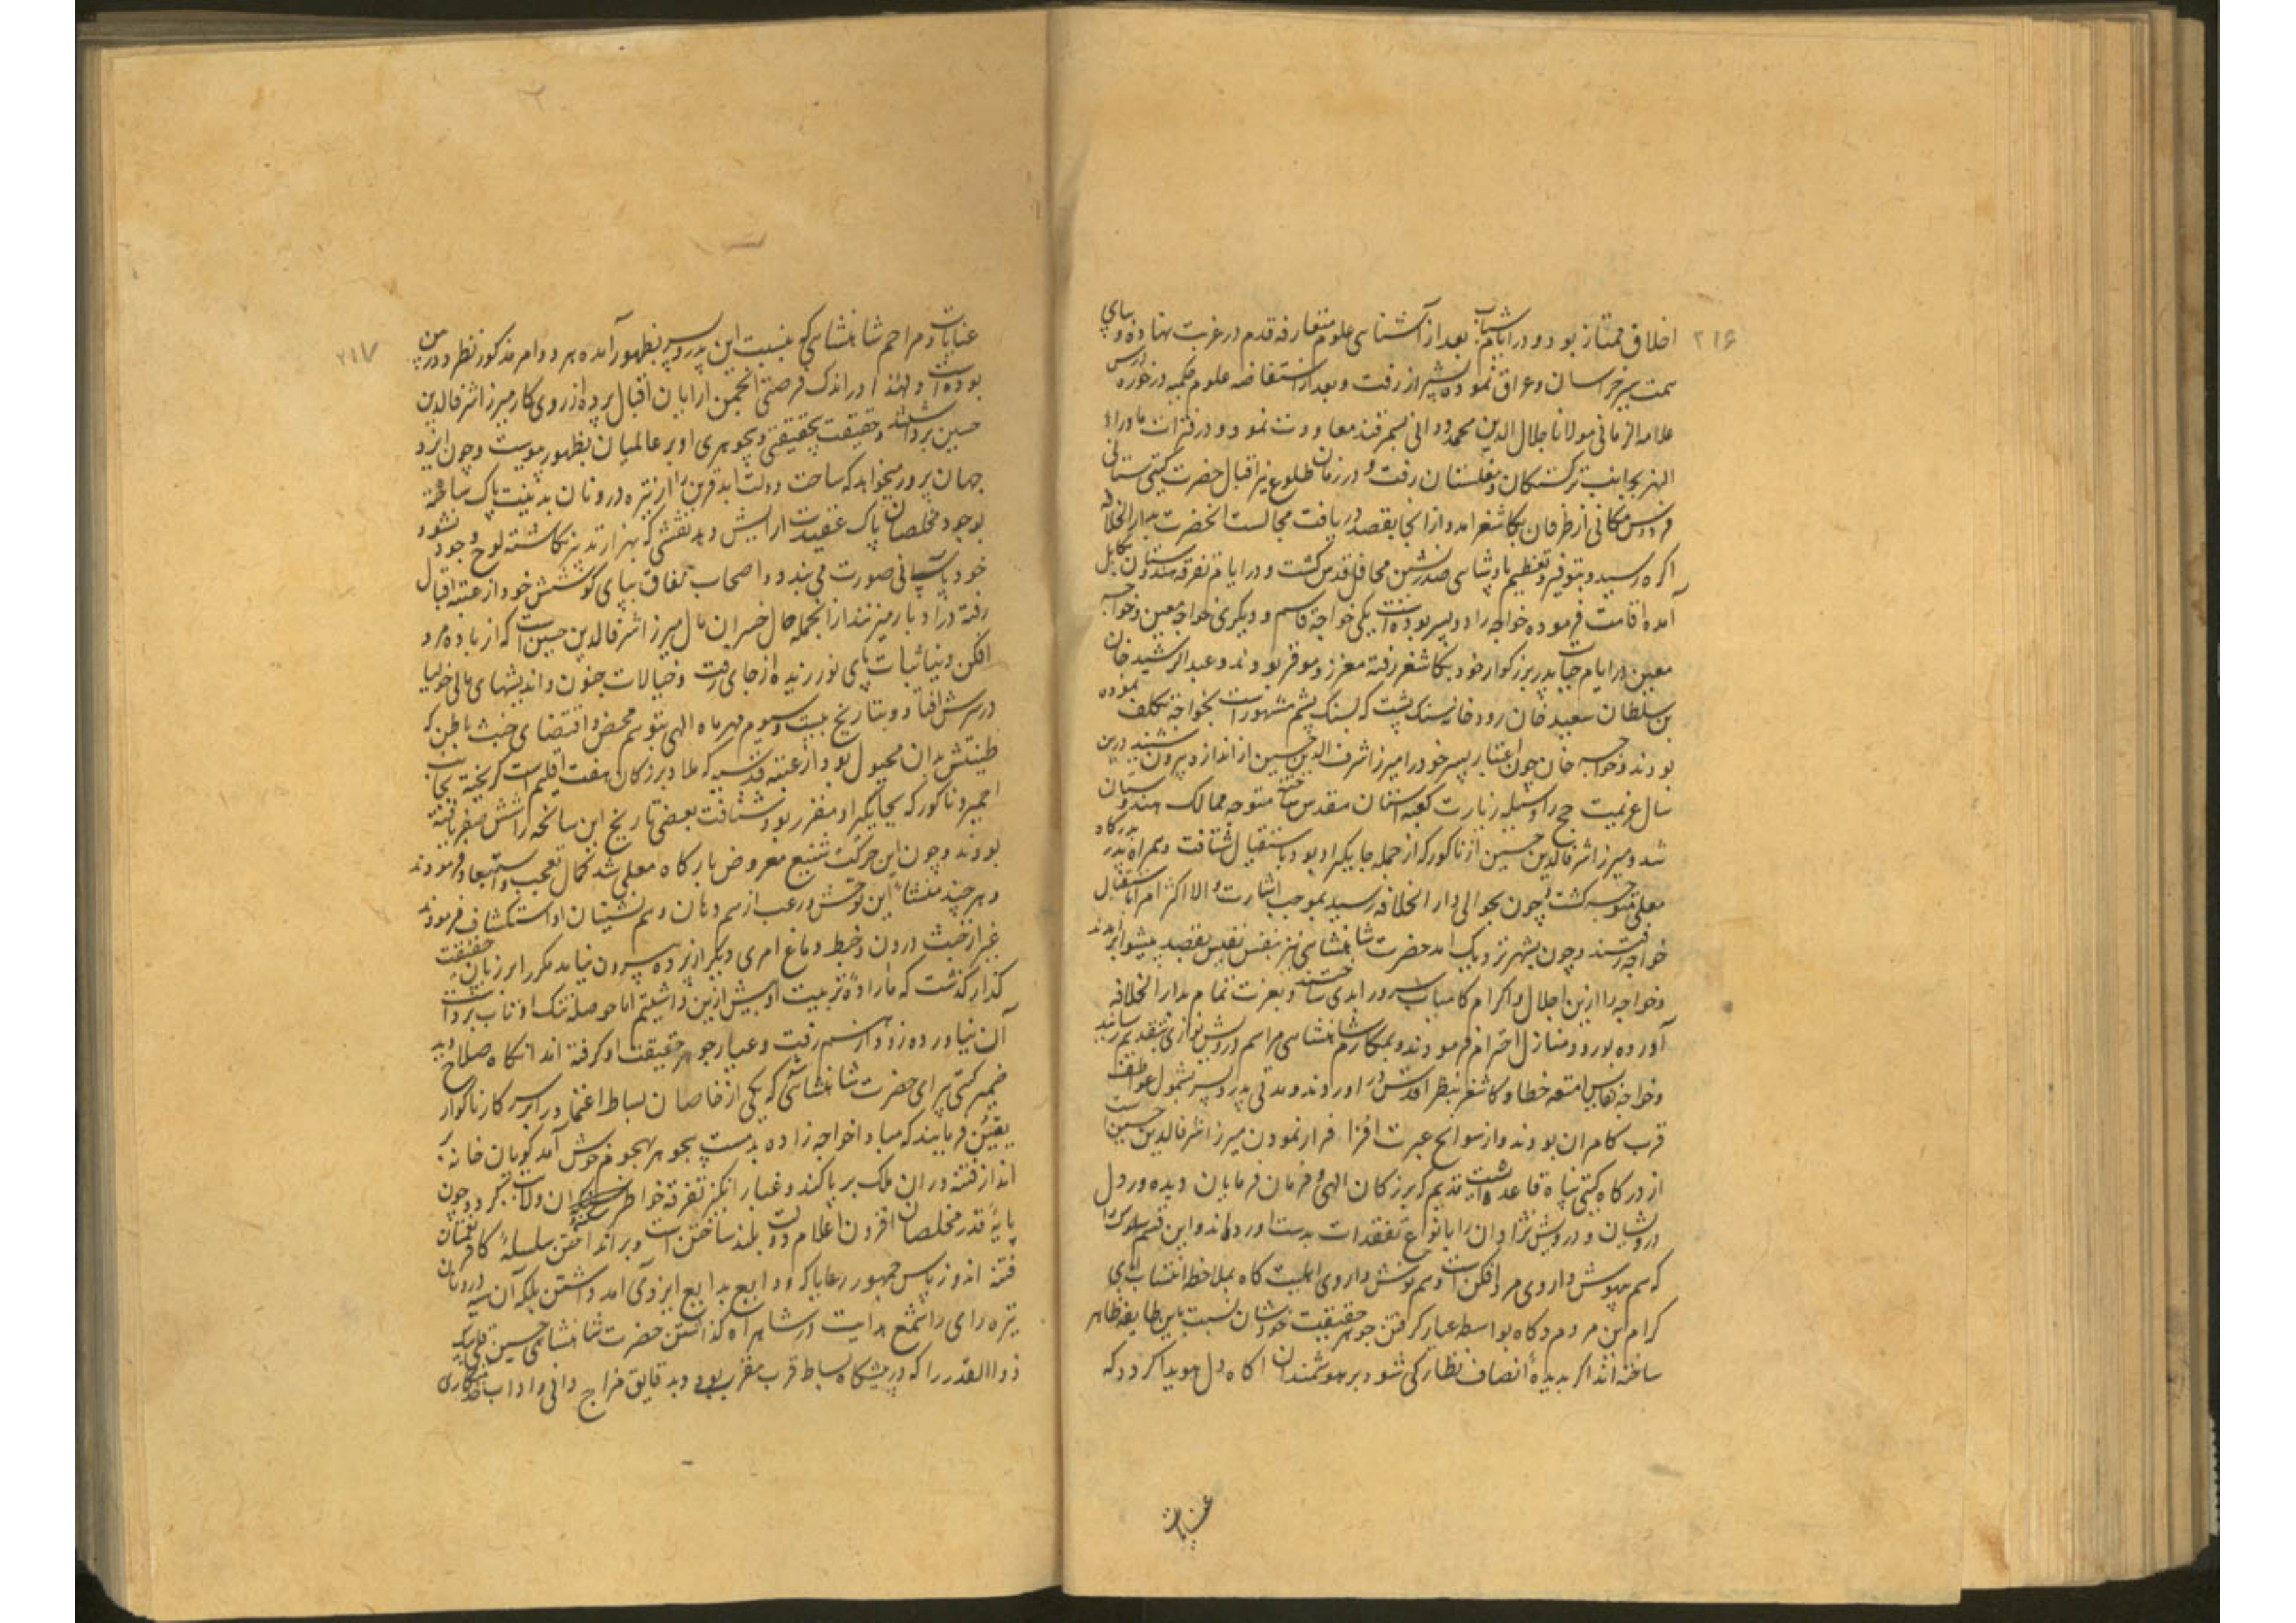 ۲۱۶
اخلاق ممتاز بود و در ایام شباب بعد از آشنائی علوم متعارفه قدم در غربت نهاده و بپای
سمت سیر خراسان و عراق نموده بشیراز رفت و بعد از استفاضه علوم حکمیه در حوزه درس
علامه الزمانی مولانا جلال الدین محمد دوانی بسمرقند معاودت نمود و در فترات ماوراء
النهر بجانب ترکستان و مغلستان رفت و در زمان طلوع نیر اقبال حضرت گیتی ستانی
فردوس مکانی از طرفان بکاشغر امد و از انجا بقصد دریافت مجالست انحضرت بدار الخلافه
اکره رسید و بتوقیر و تعظیم پادشاهی صدرنشین محافل قدس گشت و در ایام تفرقه هندوستان بکابل
آمده اقامت فرموده خواجه را دو پسر بوده است یکی خواجه قاسم و دیگری خواجه معین و خواجه
معین در ایام حیات پدر بزرکوار خود بکاشغر رفته معزز و موقر بودند و عبد الرشید خان
بن سلطان سعید خان رودخانه سنک یشب که بسنک یشم مشهور است بخواجه تکلف نموده
بودند و خواجه خان چون اعتبار پسر خود را میرزا شرف الدین حسین از اندازه بیرون شنید درین
سال عزیمت حج را وسیله زیارت کعبه استان مقدس ساخته متوجه ممالک هندوستان
شد و میرزا شرف الدین حسین از ناکور که از جمله جایکیر او بود باستقبال شتافت و همراه پدر بدرگاه
معلی متوجه گشت و چون بحوالی دار الخلافه رسید بموجب اشارت والا اکثر امرا باستقبال
خواجه رفتند و چون بشهر نزدیک امد حضرت شاهنشاهی نیز بنفس نفیس بقصد پیشوا برامدند
و خواجه را ازین اجلال و اکرام کامیاب سرور ابدی ساختند و بعزت تمام بدار الخلافه
آورده بورود منازل احترام فرمودند و بمکارم شاهنشاهی مراسم درویش نوازی بتقدیم رسانید
و خواجه نفایس امتعه خطا و کاشغر بنظر اقدس در اوردند و مدتی پدر و پسر مشمول عواطف
قرب کامران بودند و از سوانح عبرت افزا فرار نمودن میرزا شرف الدین حسین است
از درکاه گیتی پناه قاعده ایست قدیم که بزرکان الهی و فرمان فرمایان دیده ور دل
درویشان و درویش نژادان را بانواع تفقدات بدست اورده اند و این قسم سلوک را
که هم بیهوش داروی مرد افکن است و هم نوش داروی اهلیت کاه بملاحظه انتساب ابای
کرام این مردم و کاه بواسطه عیار کرفتن جوهر حقیقت خودشان نسبت باین طایفه ظاهر
ساخته اند اکر بدیدهٔ انصاف نظارکی شود بر هوشمندان اکاه دل هویدا کردد که
عنایات
۲۱۷
عنایات و مراحم شاهنشاهی که بنسبت این پدر و پسر بظهور آمده هر دو ام مذکور نظر دوربین
بوده است و لهذا در اندک فرصتی انجمن ارایان اقبال پرده از روی کار میرزا شرف الدین
حسین برداشته حقیقت بیحقیقتی و بیجوهری او بر عالمیان بظهور پیوست و چون ایزد
جهان پرور میخواهد که ساحت دولت ابد قرین را از تیره درونان بدنیت پاک ساخته
بوجود مخلصان پاک عقیدت ارایش دهد نقشی که بهزار تدبیر نکاشته لوح وجود نشود
خود باسانی صورت می بندد و اصحاب نفاق بپای کوشش خود از عتبه اقبال
رفته در ادبار میزنند از انجمله حال خسران مآل میرزا شرف الدین حسین است که از باده مرد
افکن دنیا ثبات پای نورزیده از جای رفت و خیالات جنون و اندیشهای مالیخولیا
در سرش افتاد و بتاریخ بیست و سیوم مهر ماه الهی بتوهم محض و اقتضای خبث باطن که
طینتش بدان مجبول بود از عتبه قدسیه که ملاذ بزرکان هفت اقلیم است گریخته بجانب
اجمیر و ناکور که بجایکیر او مقرر بود شتافت بعضی تاریخ این سانحه را شش صفر یافته
بودند و چون این حرکت شنیع معروض بارکاه معلی شد کمال تعجب و استبعاد فرمودند
و هر چند منشاء این توحش و رعب از همدمان و هم نشینان او استکشاف فرمودند
غیر از خبث درون و خبط دماغ امری دیکر از پرده بیرون نیامد مکرر بر زبان حقیقت
کذار کذشت که ما ارادهٔ تربیت او بیش ازین داشتیم اما حوصله تنک او تاب برداشت
آن نیاورده زود از هم رفت و عیار جوهر حقیقت او کرفته اند انکاه صلاح دید
ضمیر گیتی پیرای حضرت شاهنشاهی که یکی از خاصان بساط اعتماد را بر سر کار ناکوار
یقین فرمایند که مبادا خواجه زاده بدمست بیجوهر بهجوم خوش آمد کویان خانه بر
انداز فتنه در ان ملک برپا کند و غبار انکیز تفرقه خواطر ان ولایت گردد چون
پایهٔ قدر مخلصان افزودن اعلام دولت بلند ساختن است و بر انداختن سلسلهٔ کافر نعمتان
فتنه اندوز پاس جمهور رعایا که ودایع بدایع ایزدی امد داشتن بلکه آن سیه درونان
تیره رای را شمع هدایت در شاهراه گذاشتن حضرت شاهنشاهی حسین قلی بیک
ذو القدر را که در پیشکاه بساط قرب مقرب بود و بدقایق مزاج دانی و اداب خدمتکاری